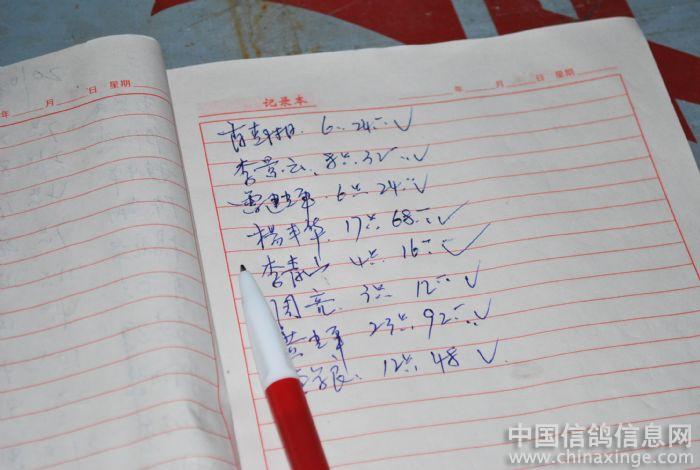 年 月 日 星期
记录本
年 月 日 星期
6只 24元 ✓
李景云 8只 32元 ✓
6只 24元 ✓
杨丰华 17只 68元 ✓
李青山 4只 16元 ✓
周亮 3只 12元 ✓
23只 92元 ✓
12只 48 ✓
中国信鸽信息网
www.chinaxinge.com